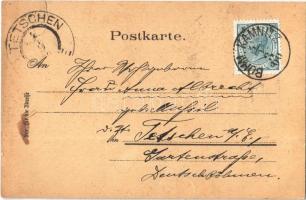 TETSCHEN
Postkarte.
BÖHM. KAMNITZ
An Ihrer Wohlgeboren
Frau Anna Albrecht
geb. Mussil
Tetschen a/E
Gartenstraße,
Deutschböhmen.